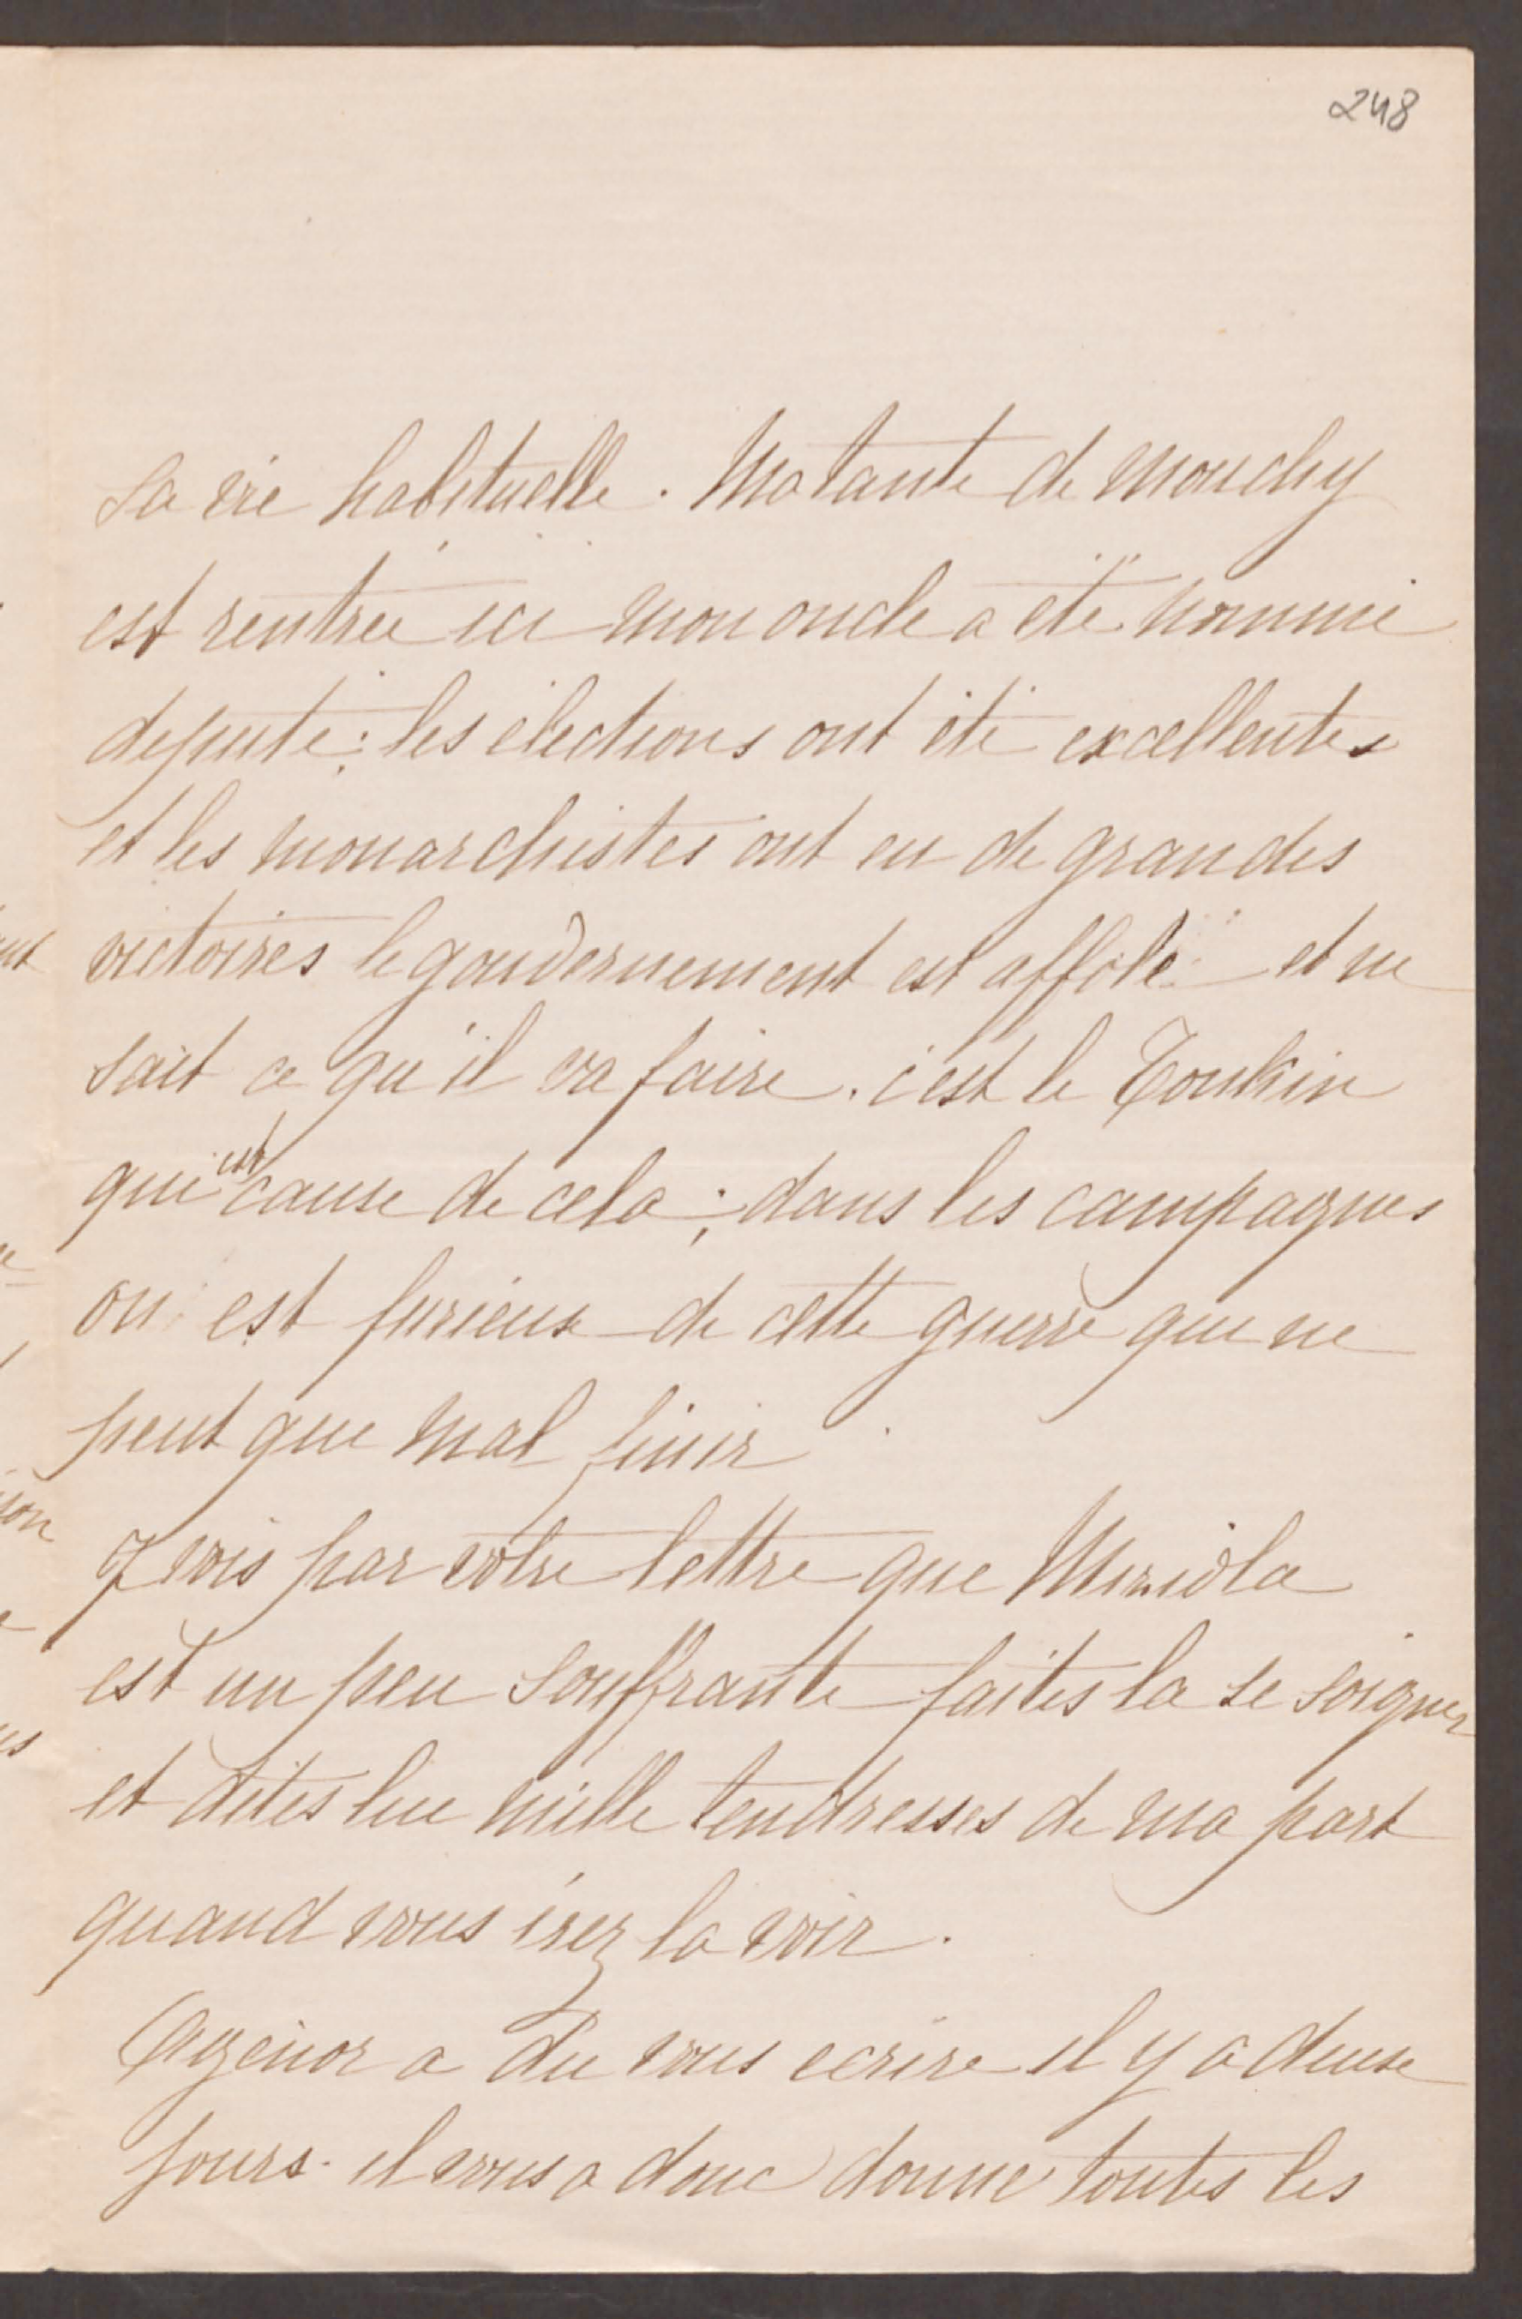 248
sa vie habituelle. Ma tante de Mouchy
est rentrée ici mon oncle a été nommé
député; les élections ont été excellentes
et les monarchistes ont eu de grandes
victoires le gouvernement est affolé et ne
sait ce qu'il va faire. c'est le Tonkin
qui est cause de cela; dans les campagnes
on est furieux de cette guerre qui ne
peut que mal finir
Je vois par votre lettre que
est un peu souffrante faites la se soigner
et dites lui mille tendresses de ma part
quand vous irez la voir.
Agénor a du vous ecrire il y a deux
jours. il vous a donc donné toutes les